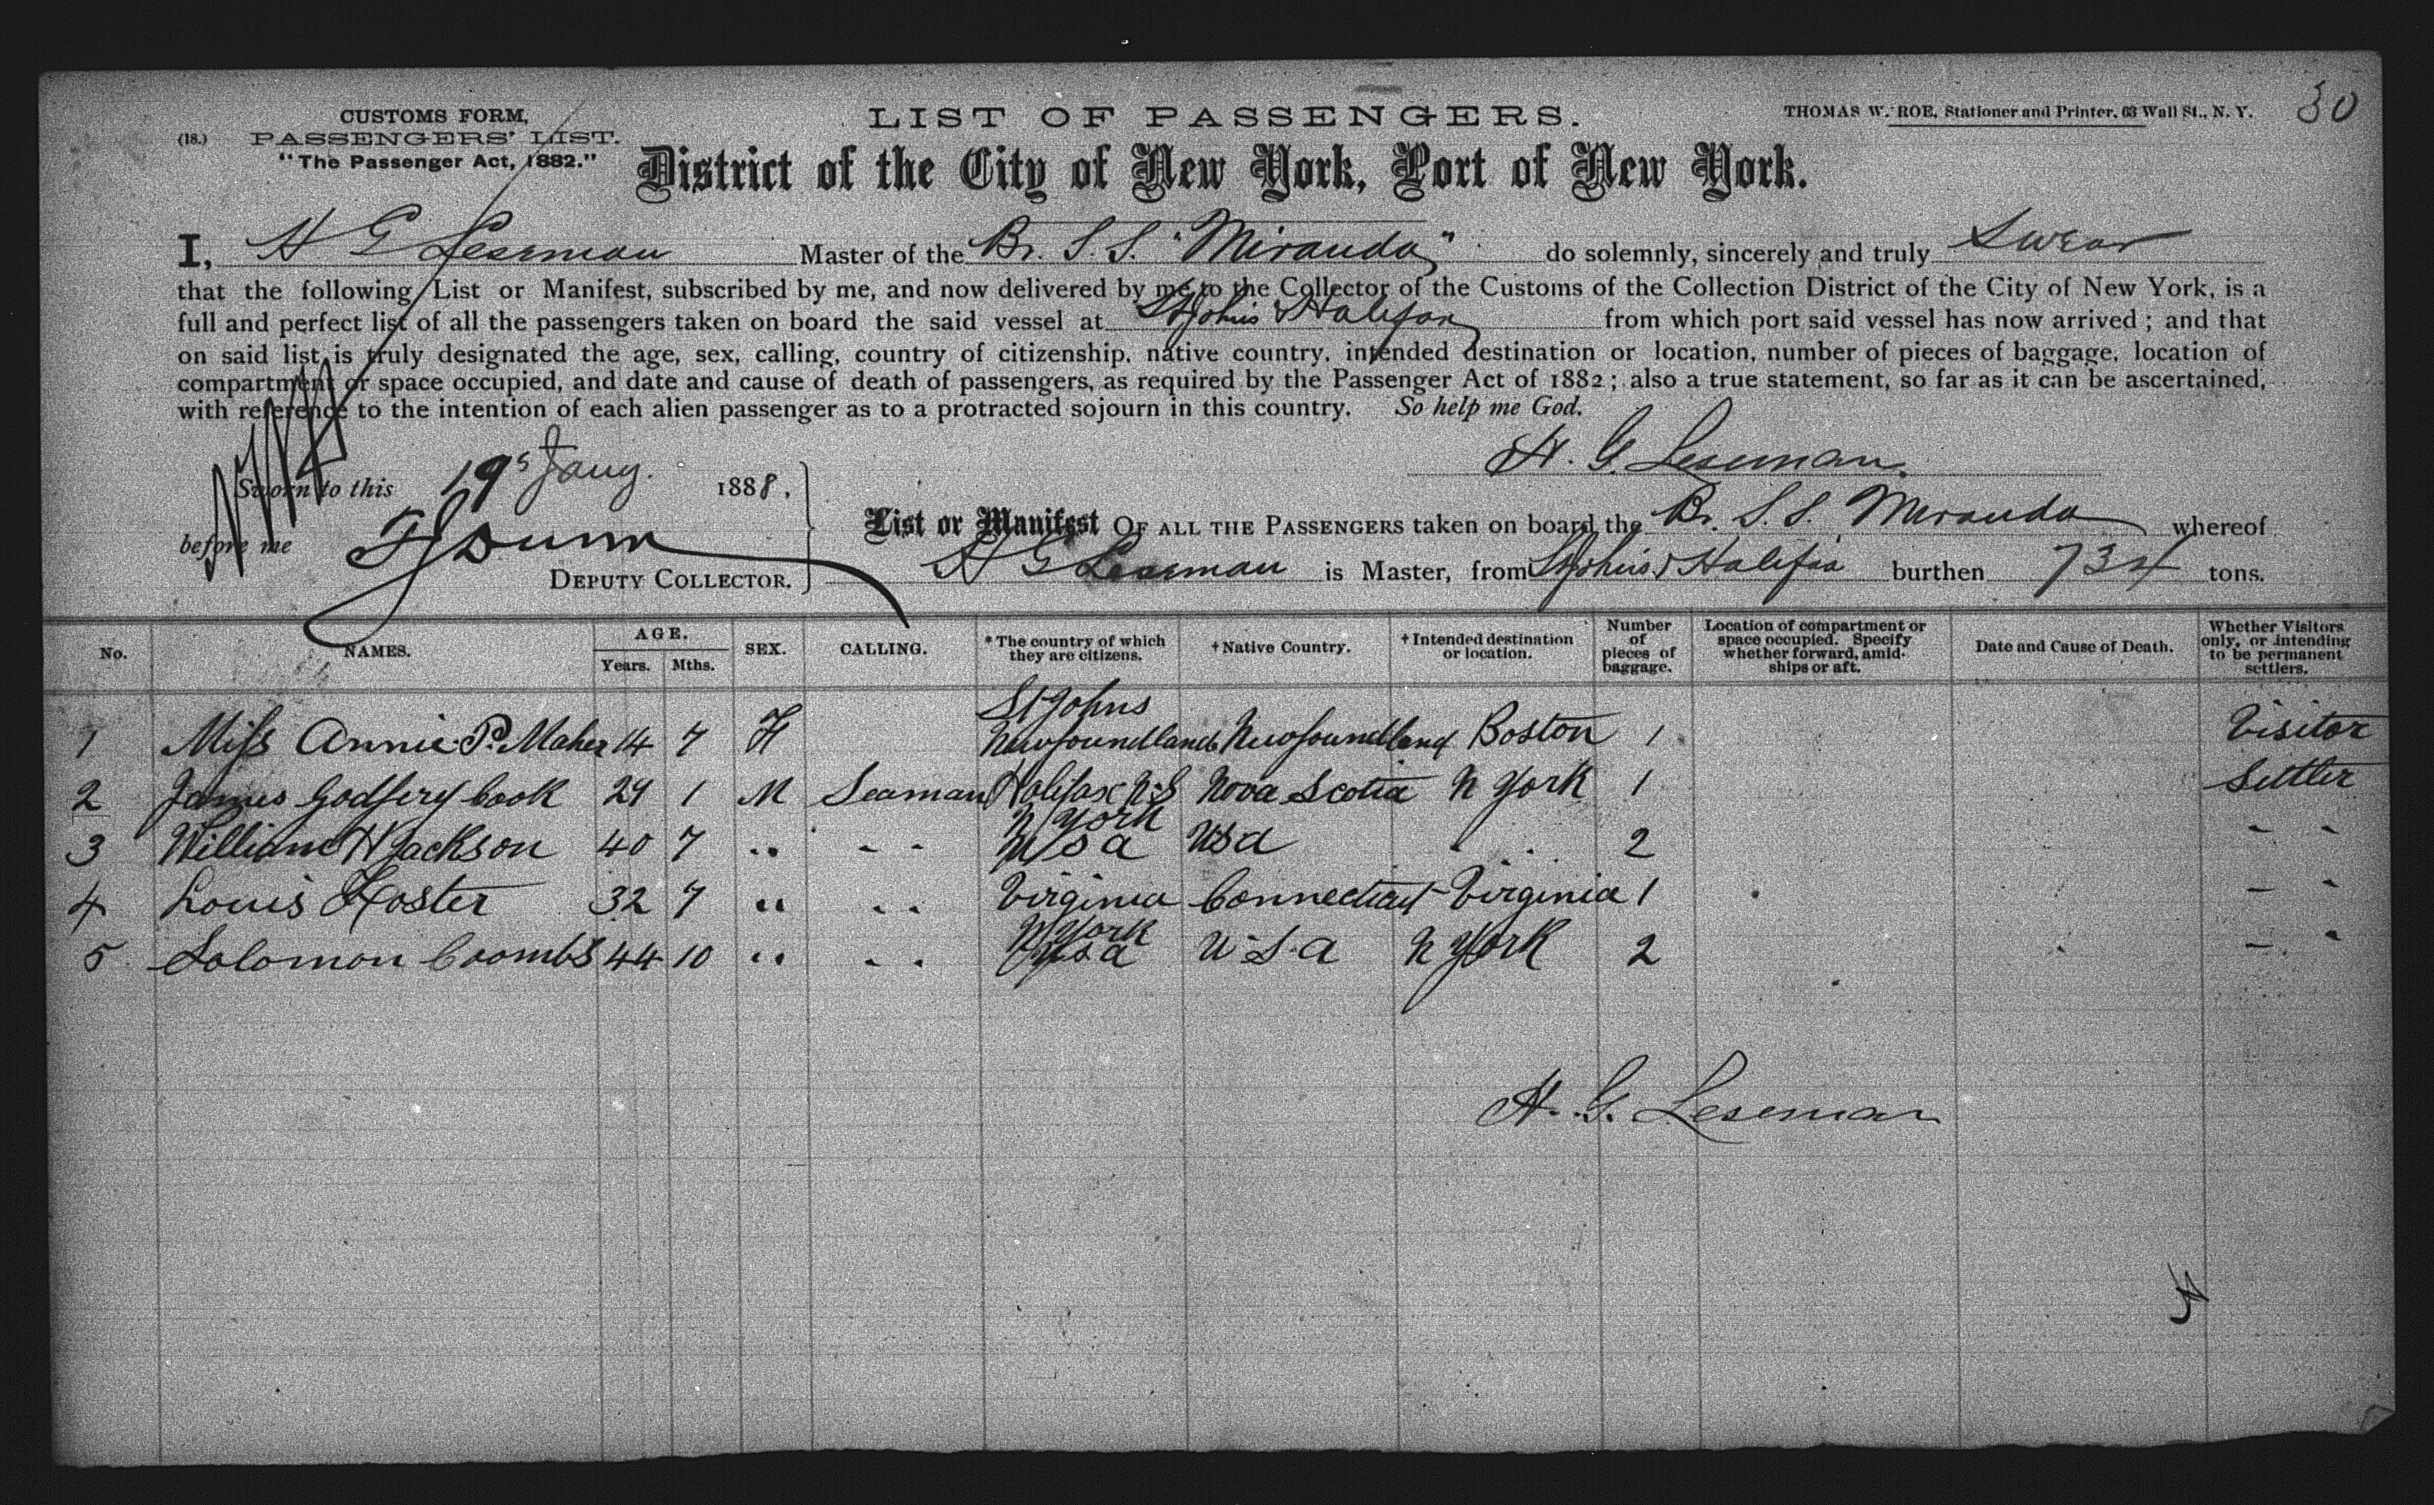 CUSTOMS FORM,
(18.) PASSENGERS' LIST.
"The Passenger Act, 1882."
LIST OF PASSENGERS.
THOMAS W. ROE, Stationer and Printer, 63 Wall St., N. Y.
30
District of the City of New York, Port of New York.
I, H G Leseman Master of the Br. S. S. "Miranda" do solemnly, sincerely and truly Swear
that the following List or Manifest, subscribed by me, and now delivered by me to the Collector of the Customs of the Collection District of the City of New York, is a
full and perfect list of all the passengers taken on board the said vessel at St Johns & Halifax from which port said vessel has now arrived; and that
on said list is truly designated the age, sex, calling, country of citizenship, native country, intended destination or location, number of pieces of baggage, location of
compartment or space occupied, and date and cause of death of passengers, as required by the Passenger Act of 1882; also a true statement, so far as it can be ascertained,
with reference to the intention of each alien passenger as to a protracted sojourn in this country. So help me God.
H. G. Leseman
Sworn to this 19 Jany. 1888,
before me
Dunn
DEPUTY COLLECTOR.
List or Manifest OF ALL THE PASSENGERS taken on board the Br. S. S. Miranda whereof
H G Leseman is Master, from St Johns & Halifax burthen 734 tons.
No. NAMES. AGE. Years. Mths. SEX. CALLING. *The country of which they are citizens. †Native Country. †Intended destination or location. Number of pieces of baggage. Location of compartment or space occupied. Specify whether forward, amidships or aft. Date and Cause of Death. Whether Visitors only, or intending to be permanent settlers.
1 Miss Annie P. Maher 14 7 F St Johns Newfoundland Newfoundland Boston 1 Visitor
2 James Godfery Cook 24 1 M Seaman Halifax N.S Nova Scotia N York 1 Settler
3 William H Jackson 40 7 " - - N York U S a U S a " " 2 - -
4 Louis Foster 32 7 " - - Virginia Connecticut Virginia 1 - -
5 Solomon Coombs 44 10 " - - N York U S a U. S. a N York 2 - -
H. G. Leseman